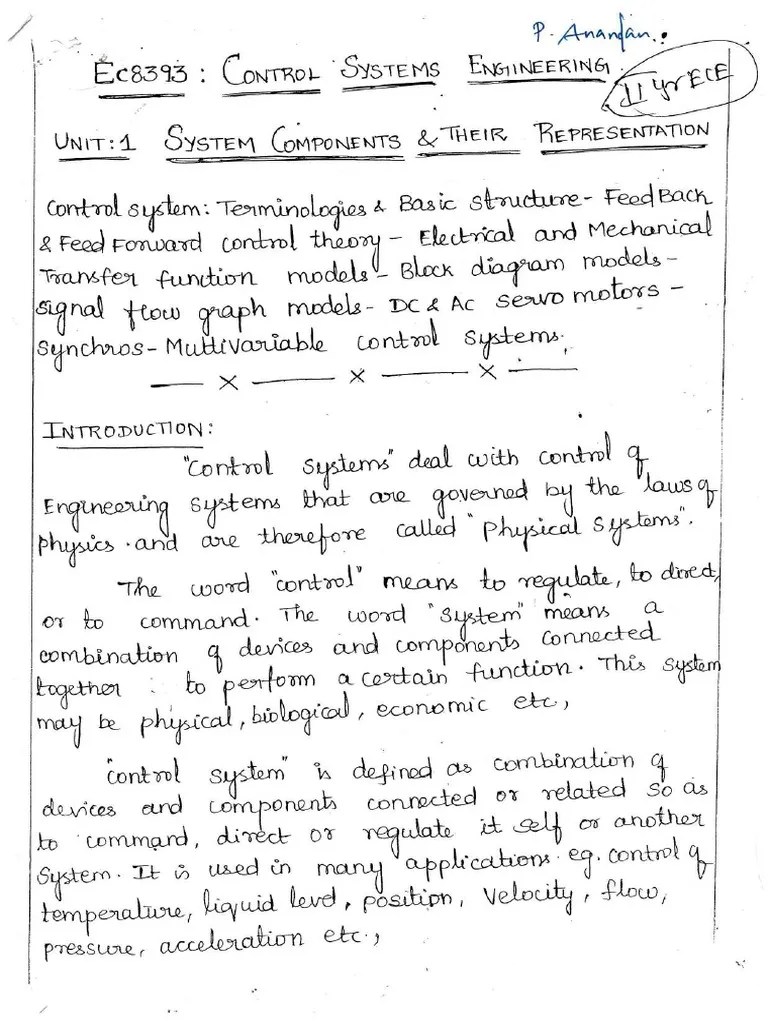 P. Anandan.
EC8393 : CONTROL SYSTEMS ENGINEERING.
II yr ECE
UNIT:1 SYSTEM COMPONENTS & THEIR REPRESENTATION
Control system: Terminologies & Basic structure - Feed Back
& Feed Forward control theory - Electrical and Mechanical
Transfer function models - Block diagram models -
Signal flow graph models - DC & AC servo motors -
Synchros - Multivariable control systems.
INTRODUCTION:
"Control systems" deal with control of
Engineering systems that are governed by the laws of
physics. and are therefore called "Physical Systems".
The word "control" means to regulate, to direct,
or to command. The word "System" means a
combination of devices and components connected
together to perform a certain function. This system
may be physical, biological, economic etc,
"control system" is defined as combination of
devices and components connected or related so as
to command, direct or regulate it self or another
System. It is used in many applications eg. control of
temperature, liquid level, position, Velocity, flow,
pressure, acceleration etc.,